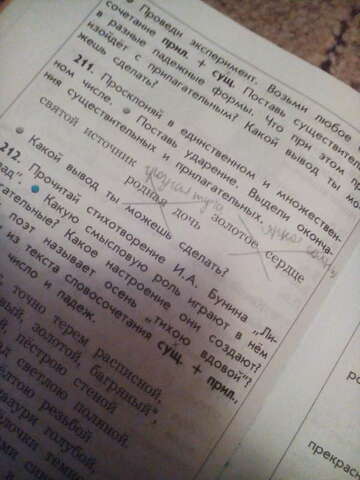 Проведи эксперимент. Возьми любое
сочетание прил. + сущ. Поставь существител
в разные падежные формы. Что при этом
изойдёт с прилагательным? Какой вывод ты мо
жешь сделать?
211. Просклоняй в единственном и множествен-
ном числе. Поставь ударение. Выдели оконча-
ния существительных и прилагательных.
святой источник
родная дочь золотое сердце
Какой вывод ты можешь сделать?
212. Прочитай стихотворение И.А. Бунина „Ли-
пад". Какую смысловую роль играют в нём
гательные? Какое настроение они создают?
поэт называет осень „тихою вдовой"?
из текста словосочетания сущ. + прил.,
число и падеж.
точно терем расписной,
вый, золотой, багряный,
й, пёстрою стеной
д светлою поляной.
ёлтою резьбой
лазури голубой,
ёлочки темне
прекрасн